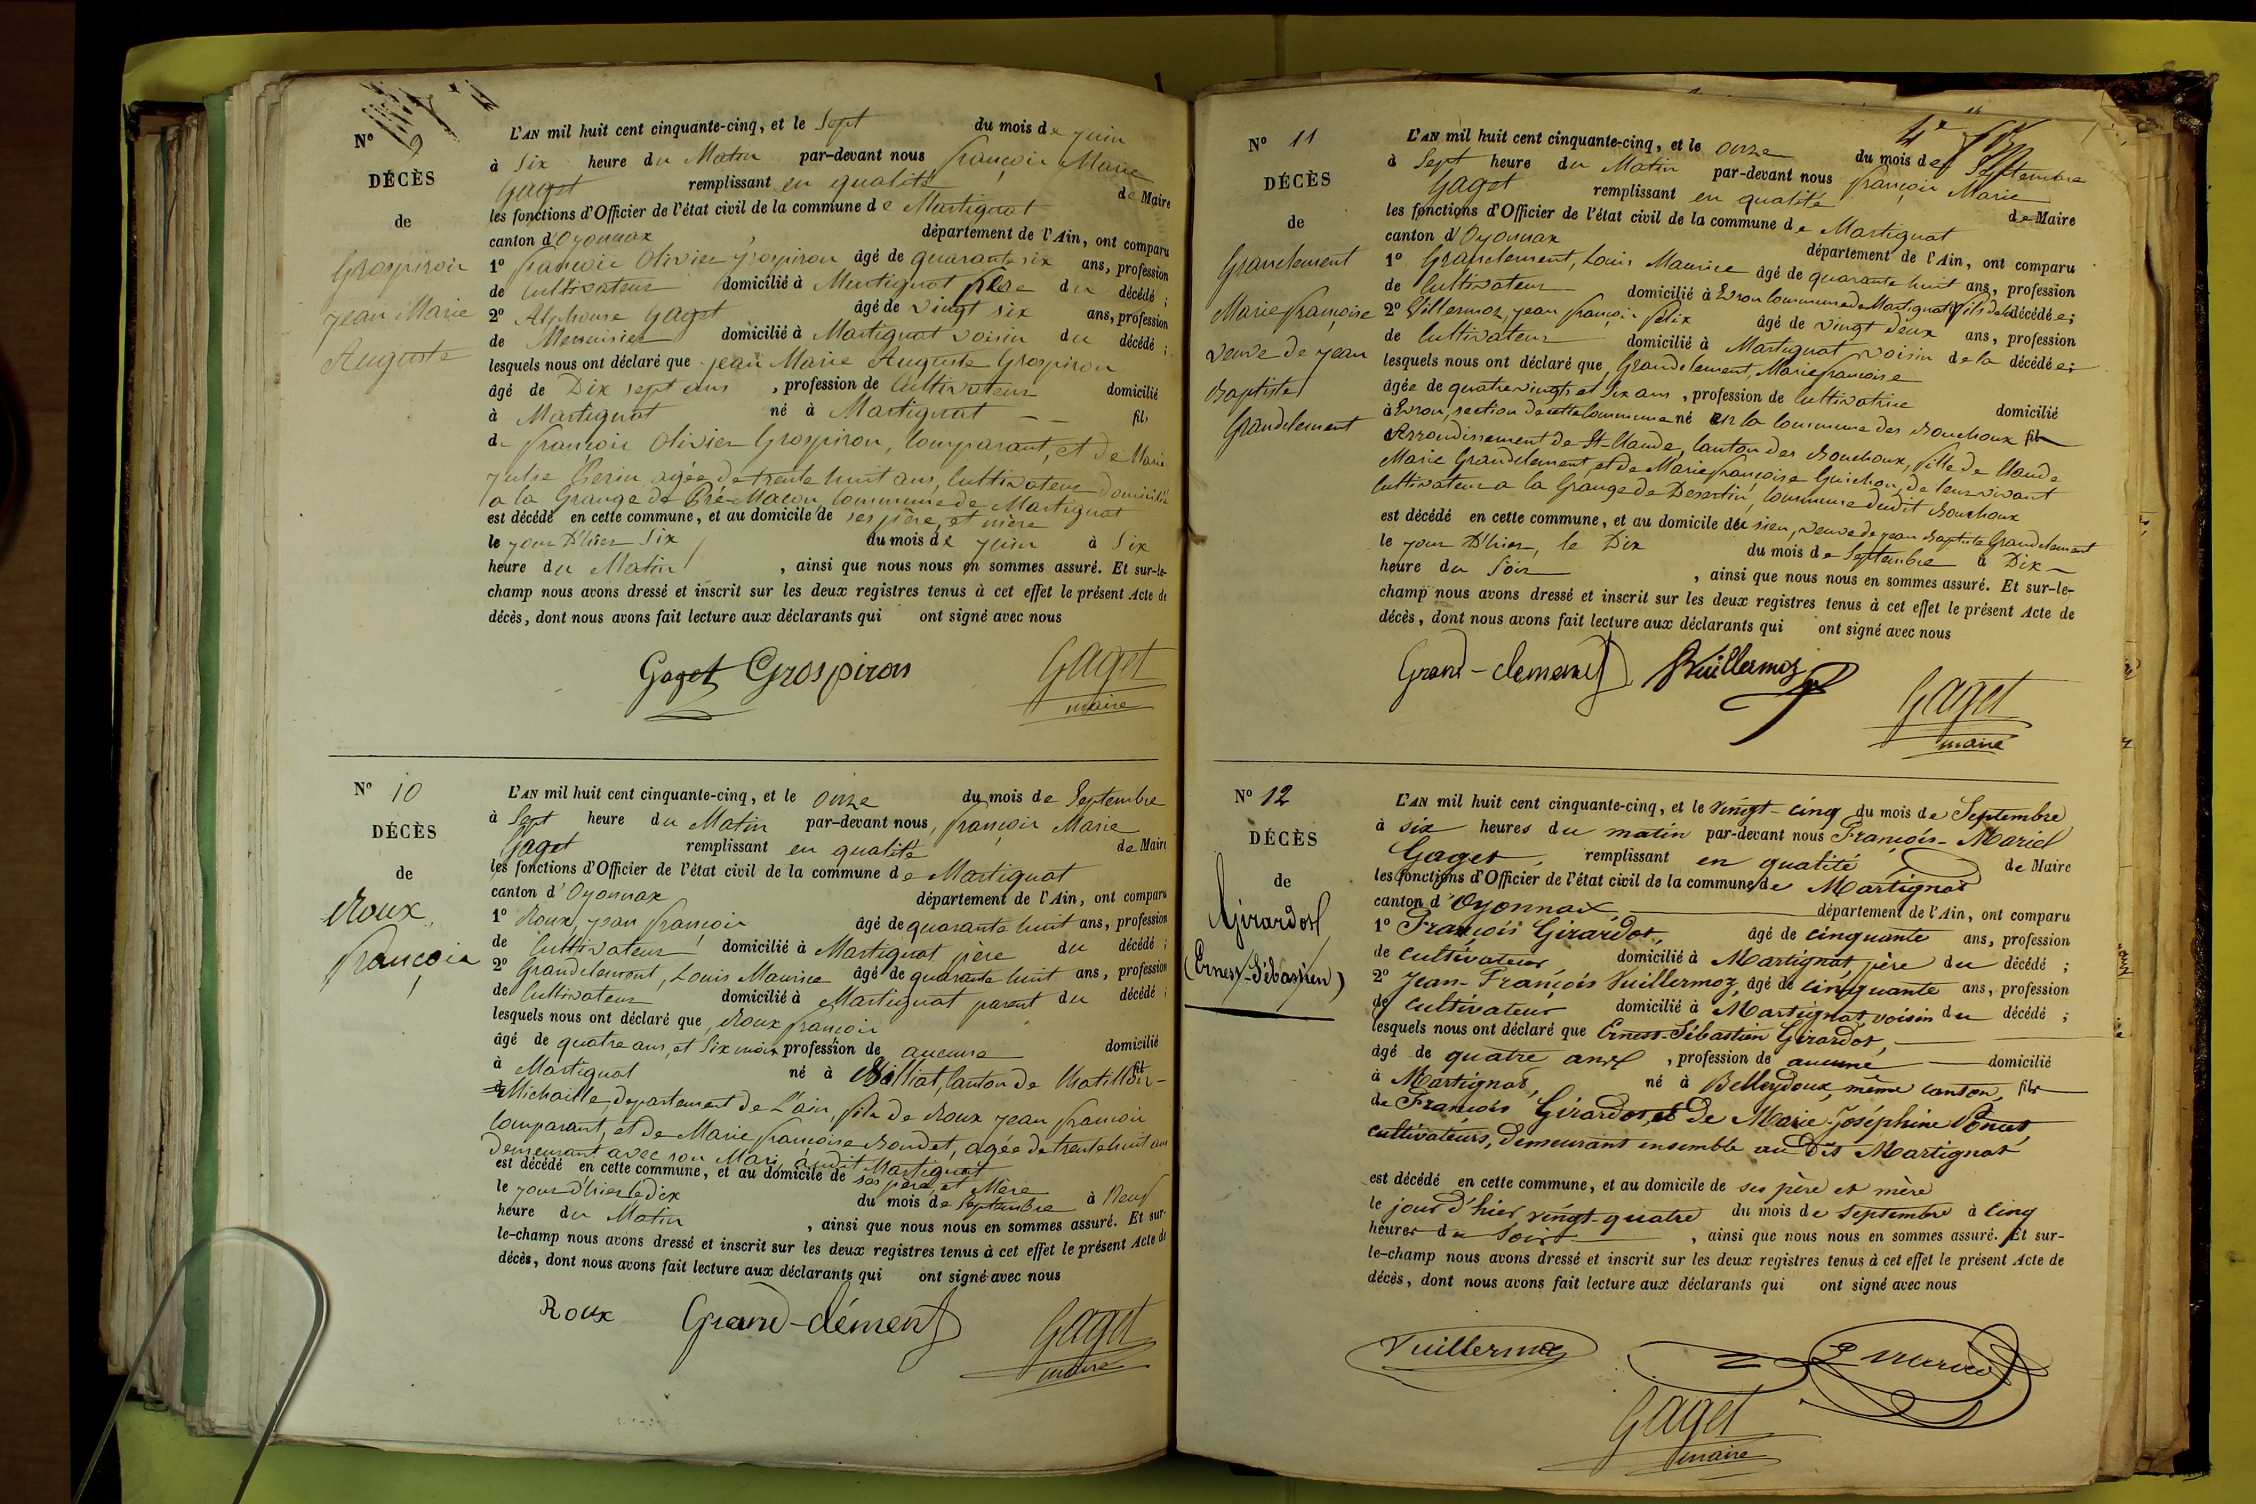 N° 9
DÉCÈS
de
Grospiron
Jean Marie
Auguste
L'AN mil huit cent cinquante-cinq, et le Sept du mois de juin
à Six heure du Matin par-devant nous françois Marie
Gaget remplissant en qualité de Maire
les fonctions d'Officier de l'état civil de la commune de Martignat
canton d'Oyonnax département de l'Ain, ont comparu
1° françois Olivier grospiron âgé de quarante six ans, profession
de Cultivateur domicilié à Martignat père du décédé ;
2° Alphonse Gaget âgé de vingt six ans, profession
de Menuisier domicilié à Martignat voisin du décédé ;
lesquels nous ont déclaré que jean Marie Auguste Grospiron
âgé de Dix sept ans , profession de Cultivateur domicilié
à Martignat né à Martignat — fils
de françois Olivier Grospiron, Comparant, et de Marie
julie agée de trente huit ans, Cultivateur Domicilié
a la Grange de Pré-Macon, Commune de Martignat
est décédé en cette commune, et au domicile de ses père et mère
le jour D'hier Six du mois de juin à Six
heure du Matin , ainsi que nous nous en sommes assuré. Et sur-le-
champ nous avons dressé et inscrit sur les deux registres tenus à cet effet le présent Acte de
décès, dont nous avons fait lecture aux déclarants qui ont signé avec nous
Gaget Grospiron Gaget
maire
N° 10
DÉCÈS
de
Roux
françois
L'AN mil huit cent cinquante-cinq, et le onze du mois de Septembre
à Sept heure du Matin par-devant nous, françois Marie
Gaget remplissant en qualité de Maire
les fonctions d'Officier de l'état civil de la commune de Martignat
canton d'Oyonnax département de l'Ain, ont comparu
1° Roux, jean françois âgé de quarante huit ans, profession
de Cultivateur domicilié à Martignat père du décédé ;
2° Grandclement, Louis Maurice âgé de quarante huit ans, profession
de Cultivateur domicilié à Martignat parent du décédé ;
lesquels nous ont déclaré que, Roux françois
âgé de quatre ans, et Six mois profession de aucune domicilié
à Martignat né à Billiat, Canton de Chatillon- fil
de Michaille, departement de L'ain, fils de Roux jean françois
Comparant, et de Marie françoise Boudet, agée de trente huit ans
Demeurant avec son Mari, audit Martignat
est décédé en cette commune, et au domicile de ses père et Mère
le jour d'hier le dix du mois de Septembre à Neuf
heure du Matin , ainsi que nous nous en sommes assuré. Et sur-
le-champ nous avons dressé et inscrit sur les deux registres tenus à cet effet le présent Acte de
décès, dont nous avons fait lecture aux déclarants qui ont signé avec nous
Roux Grand-clément Gaget
maire
N° 11
DÉCÈS
de
Grandclement
Marie françoise
veuve de jean
Baptiste
Grandclement
L'AN mil huit cent cinquante-cinq, et le onze du mois de Septembre
à Sept heure du Matin par-devant nous françois Marie
Gaget remplissant en qualité de Maire
les fonctions d'Officier de l'état civil de la commune de Martignat
canton d'Oyonnax département de l'Ain, ont comparu
1° Grandclement, Louis Maurice âgé de quarante huit ans, profession
de Cultivateur domicilié à Evron Commune de Martignat fils de la décédée ;
2° Villermoz, jean françois félix âgé de vingt deux ans, profession
de Cultivateur domicilié à Martignat voisin de la décédée ;
lesquels nous ont déclaré que, Grandclement, Marie françoise
âgée de quatre vingts et Six ans , profession de Cultivatrice domicilié
à Evron, section de cette Commune né en la Commune des Bouchoux fil
Arrondissement de St-Claude, Canton des Bouchoux, fille de Claude
Marie Grandclement, et de Marie françoise Guichon, de leur vivant
Cultivateur a la Grange de Desertin, Commune dudit Bouchoux
est décédé en cette commune, et au domicile du sien, veuve de jean Baptiste Grandclement
le jour D'hier, le Dix du mois de Septembre à Dix
heure du Soir , ainsi que nous nous en sommes assuré. Et sur-le-
champ nous avons dressé et inscrit sur les deux registres tenus à cet effet le présent Acte de
décès, dont nous avons fait lecture aux déclarants qui ont signé avec nous
Grand-clement Vuillermoz Gaget
maire
N° 12
DÉCÈS
de
Girardot
(Ernest-Sébastien)
L'AN mil huit cent cinquante-cinq, et le vingt-cinq du mois de Septembre
à six heures du matin par-devant nous François-Marie
Gaget, remplissant en qualité de Maire
les fonctions d'Officier de l'état civil de la commune de Martignat
canton d'Oyonnax, département de l'Ain, ont comparu
1° François Girardot, âgé de cinquante ans, profession
de cultivateur domicilié à Martignat père du décédé ;
2° Jean-François Vuillermoz, âgé de cinquante ans, profession
de cultivateur domicilié à Martignat, voisin du décédé ;
lesquels nous ont déclaré que Ernest-Sébastien Girardot,
âgé de quatre ans , profession de aucune domicilié
à Martignat, né à Belleydoux, même canton, fils
de François Girardot, et de Marie-Joséphine Poncet
cultivateurs, demeurant ensemble au dit Martignat
est décédé en cette commune, et au domicile de ses père et mère
le jour d'hier vingt-quatre du mois de Septembre à cinq
heures du Soir , ainsi que nous nous en sommes assuré. Et sur-
le-champ nous avons dressé et inscrit sur les deux registres tenus à cet effet le présent Acte de
décès, dont nous avons fait lecture aux déclarants qui ont signé avec nous
Vuillermoz
Gaget
maire